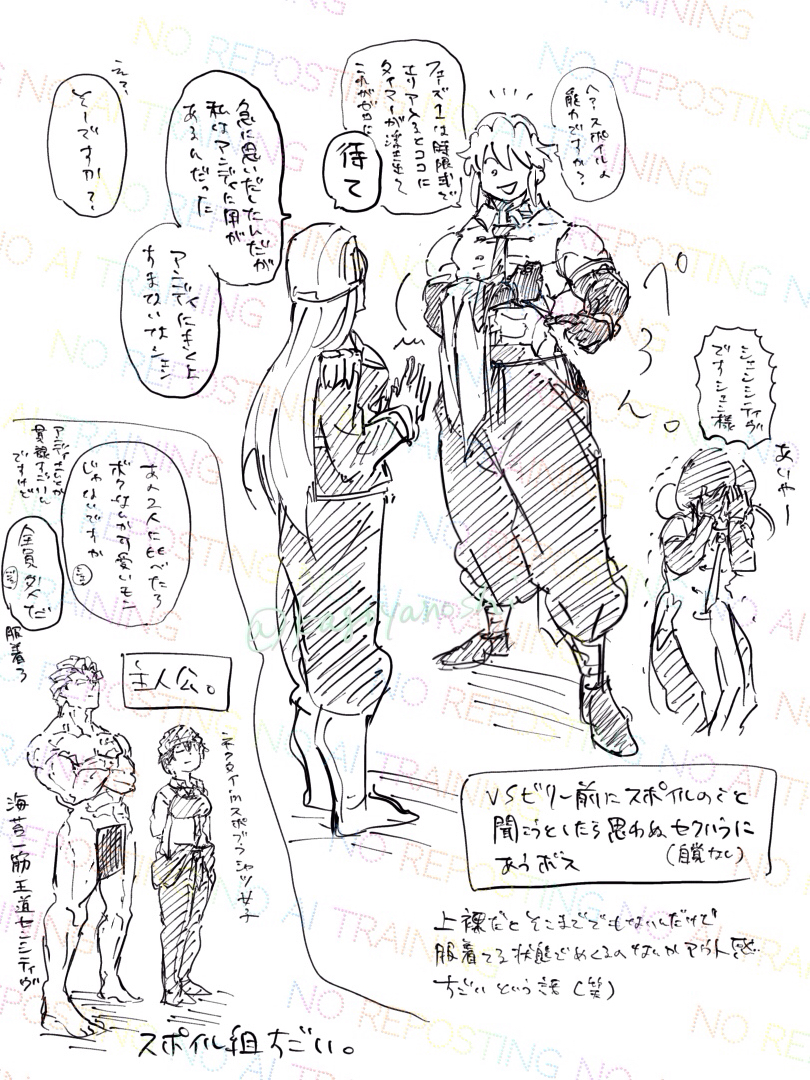 へ？スポイルの
能力ですか？
フェーズ1は時限式で
エリア入るとココに
タイマーが浮き出て
これがゼロに
待て
急に思いだしたんだが
私はアンディに用が
あるんだった
アンディにきく上
すまないなション
えっ、
そーですか？
ぺろん。
センシティヴ
ですシェン様
あいやー
あの2人に比べたら
ボクなんか可愛いモン
じゃないですか
アンディさんとか
すごいん
ですけど
全員ダメだ
服着ろ
主人公。
海苔一筋王道センシティヴ
ネクタイinスポブラシャツ女子
スポイル組ちごい。
VSビリー前にスポイルのこと
聞こうとしたら思わぬセクハラに
あうボス
(自覚なし)
上裸だとそこまででもないんだけど
服着てる状態でめくるの
アウト感
ちごいという話(笑)
@kasayanoshi
NO REPOSTING
NO AI TRAINING